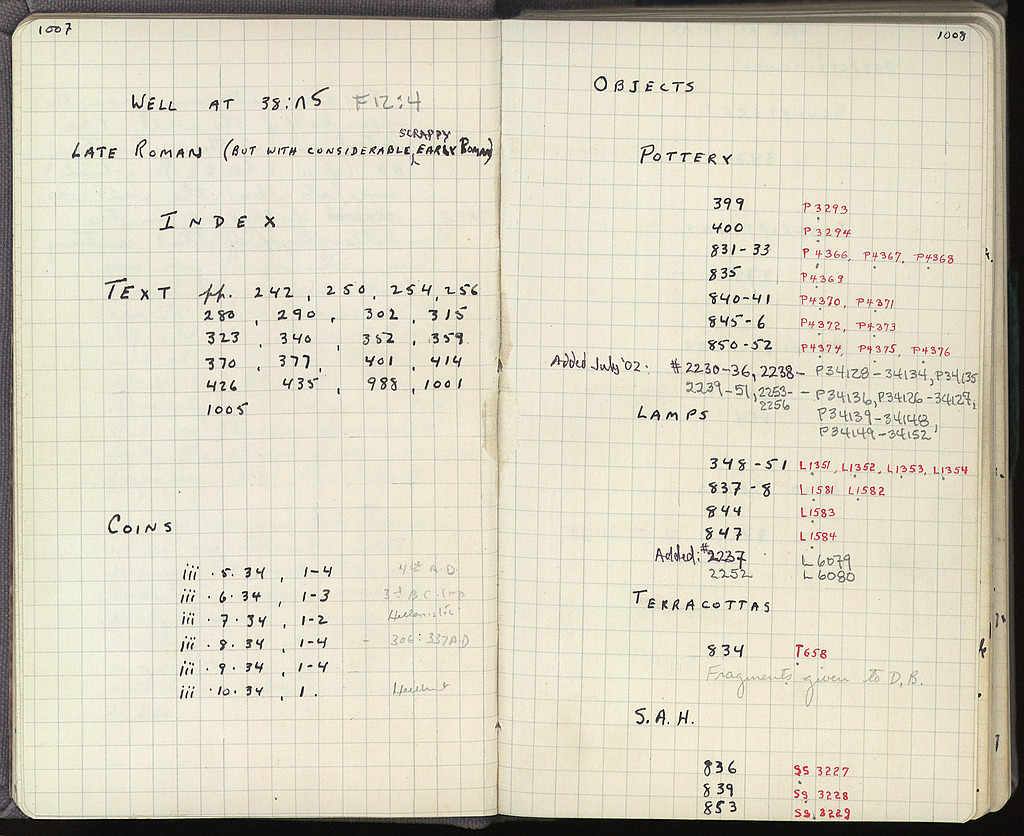 1007
WELL AT 38:ΛΕ F12:4
LATE ROMAN (BUT WITH CONSIDERABLE SCRAPPY EARLY ROMAN)
INDEX
TEXT pp. 242, 250, 254, 256
280, 290, 302, 315
323, 340, 352, 359
370, 377, 401, 414
426, 435, 988, 1001
1005
COINS
iii · 5 · 34, 1-4 4th A.D.
iii · 6 · 34, 1-3 3rd B.C. Imp
iii · 7 · 34, 1-2 Hellenistic
iii · 8 · 34, 1-4 - 306:337 A.D
iii · 9 · 34, 1-4
iii · 10 · 34, 1.
1008
OBJECTS
POTTERY
399 P3293
400 P3294
831-33 P4366, P4367, P4368
835 P4369
840-41 P4370, P4371
845-6 P4372, P4373
850-52 P4374, P4375, P4376
Added July '02. #2230-36, 2238- P34128-34134, P34135
2239-51, 2253- - P34136, P34126-34127,
2256 P34139-34148,
P34149-34152
LAMPS
348-51 L1351, L1352, L1353, L1354
837-8 L1581 L1582
844 L1583
847 L1584
Added: #2237 L6079
2252 L6080
TERRACOTTAS
834 T658
Fragments given to D.B.
S.A.H.
836 SS 3227
839 SS 3228
853 SS 3229